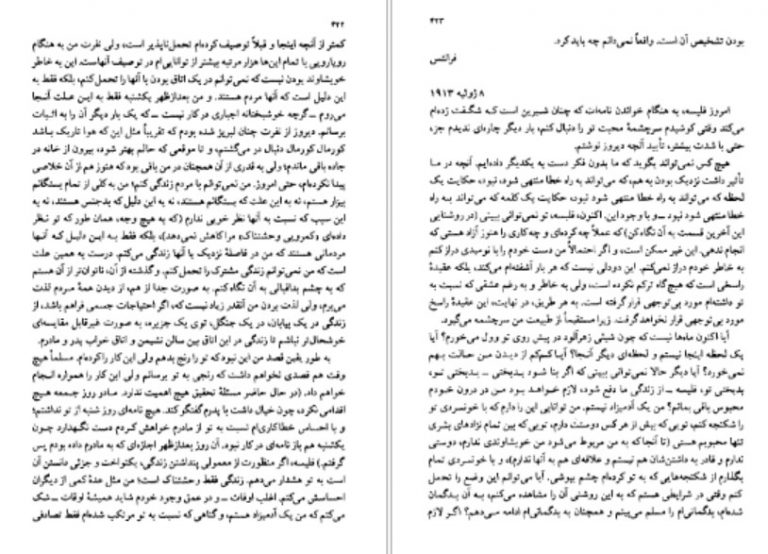 ۴۲۲
کمتر از آنچه اینجا و قبلاً توصیف کرده‌ام تحمل‌ناپذیر است، ولی نفرت من به هنگام
رویارویی با تمام این‌ها هزار مرتبه بیشتر از توانایی‌ام در توصیف آنهاست. این به خاطر
خویشاوند بودن نیست که نمی‌توانم در یک اتاق بودن با آنها را تحمل کنم، بلکه فقط به
این دلیل است که آنها مردم هستند. و من بعدازظهر یکشنبه فقط به این علت آنجا
می‌روم ــ گرچه خوشبختانه اجباری در کار نیست ــ که یک بار دیگر آن را به اثبات
برسانم. دیروز از نفرت چنان لبریز شده بودم که تقریباً مثل این که هوا تاریک باشد
کورمال کورمال دنبال در می‌گشتم، و تا موقعی که حالم بهتر شود، بیرون از خانه در
جاده باقی ماندم؛ ولی به قدری از آن همچنان در من باقی بود که هنوز هم از آن خلاصی
پیدا نکرده‌ام، حتی امروز. من نمی‌توانم با مردم زندگی کنم؛ من به کلی از تمام بستگانم
بیزار هستم، نه به این علت که بستگانم هستند، نه به این دلیل که بدجنس هستند، نه به
این سبب که نسبت به آنها نظر خوبی ندارم (که به هیچ وجه، همان طور که تو نظر
داده‌ای «کمرویی وحشتناک» مرا کاهش نمی‌دهد)، بلکه فقط به این دلیل که آنها
مردمانی هستند که من در فاصلهٔ نزدیک با آنها زندگی می‌کنم. درست به همین علت
است که من نمی‌توانم زندگی مشترک را تحمل کنم. و گذشته از آن، ناتوان‌تر از آن هستم
که به چشم بداقبالی به آن نگاه کنم. به صورت جدا از هم، از دیدن همهٔ مردم لذت
می‌برم، ولی لذت بردن من آنقدر زیاد نیست که، اگر احتیاجات جسمی فراهم باشد، از
زندگی در یک بیابان، در یک جنگل، توی یک جزیره، به صورت غیرقابل مقایسه‌ای
خوشحال‌تر نباشم تا زندگی در این اتاق بین سالن نشیمن و اتاق خواب پدر و مادرم.
به طور یقین قصد من این نبوه که تو را رنج بدهم ولی این کار را کرده‌ام. مسلماً هیچ
وقت هم قصدی نخواهم داشت که رنجی به تو برسانم ولی این کار را همواره انجام
خواهم داد. (در حال حاضر مسئلهٔ تحقیق هیچ اهمیت ندارد. مادر روز جمعه هیچ
اقدامی نکرد، چون خیال داشت با پدرم گفتگو کند. هیچ نامه‌ای روز شنبه از تو نداشتم؛
و با احساس خطاکاری‌ام نسبت به تو از مادرم خواهش کردم دست نگهدارد چون
یکشنبه هم باز نامه‌ای در کار نبود. آن روز بعدازظهر اجازه‌ای که به مادرم داده بودم پس
گرفتم.) فلیسه، اگر منظورت از معمولی پنداشتن زندگی، یکنواخت و جزئی دانستن آن
است به تو هشدار می‌دهم. زندگی فقط وحشتناک است؛ من مثل عدهٔ کمی از دیگران
احساسش می‌کنم. اغلب اوقات ــ و در عمق وجود خودم شاید همیشهٔ اوقات ــ شک
می‌کنم که من یک آدمیزاد هستم، و گناهی که نسبت به تو مرتکب شده‌ام فقط تصادفی
۴۲۳
بودن تشخیصی آن است. واقعاً نمی‌دانم چه باید کرد.
فرانتس
۸ ژوئیه ۱۹۱۳
امروز فلیسه، به هنگام خواندن نامه‌ات که چنان شیرین است که شگفت زده‌ام
می‌کند وقتی کوشیدم سرچشمهٔ محبت تو را دنبال کنم، بار دیگر چاره‌ای ندیدم جز،
حتی با شدت بیشتر، تأیید آنچه دیروز نوشتم.
هیچ کس نمی‌تواند بگوید که ما بدون فکر دست به یکدیگر داده‌ایم. آنچه در ما
تأثیر داشت نزدیک بودن به هم، که می‌تواند به راه خطا منتهی شود، نبود، حکایت یک
لحظه که می‌تواند به راه خطا منتهی شود نبود، حکایت یک کلمه که می‌تواند به راه
خطا منتهی شود نبود ــ و با وجود این. اکنون، فلیسه، تو نمی‌توانی ببینی (در روشنایی
این آخرین قسمت به آن نگاه کن) که عملاً چه کرده‌ای و چه‌کاری را هنوز آزاد هستی که
انجام ندهی. این غیر ممکن است، و اگر احتمالاً من دست خودم را با نومیدی دراز کنم
به خاطر خودم دراز نمی‌کنم. این دودلی نیست که هر بار آشفته‌ام می‌کند، بلکه عقیدهٔ
راسخی است که هیچگاه ترکم نکرده است، ولی به خاطر و به رغم عشقی که نسبت به
تو داشته‌ام مورد بی‌توجهی قرار گرفته است. به هر طریق، در نهایت، این عقیدهٔ راسخ
مورد بی‌توجهی قرار نخواهد گرفت. زیرا مستقیماً از طبیعت من سرچشمه می‌گیرد.
آیا اکنون ماه‌ها نیست که چون شیئی زهرآلود در پیش روی تو وول می‌خورم؟ آیا
یک لحظه اینجا نیستم و لحظه‌ای دیگر آنجا؟ آیا کم‌کم از دیدن من حالت بهم
نمی‌خورد؟ آیا دیگر حالا نمی‌توانی ببینی که اگر بنا شود بدبختی ــ بدبختی تو،
بدبختی تو، فلیسه ــ از زندگی ما دفع شود، لازم خواهد بود من در درون خودم
محبوس باقی بمانم؟ من یک آدمیزاد نیستم. من توانایی این را دارم که با خونسردی تو
را شکنجه کنم، تویی که بیش از هر کس دوستت دارم، تویی که بین تمام نژادهای بشری
تنها محبوبم هستی (تا آنجا که به من مربوط می‌شود من خویشاوندی ندارم، دوستی
ندارم و قادر به داشتن‌شان هم نیستم و علاقه‌ای هم به آنها ندارم)، و با خونسردی تمام
بگذارم از شکنجه‌هایی که به تو کرده‌ام چشم بپوشی. آیا می‌توانم این وضع را تحمل
کنم وقتی در شرایطی هستم که به این روشنی آن را مشاهده می‌کنم، به آن بدگمان
شده‌ام، بدگمانی‌ام را مسلم می‌بینم و همچنان به بدگمانی‌ام ادامه می‌دهم؟ اگر لازم